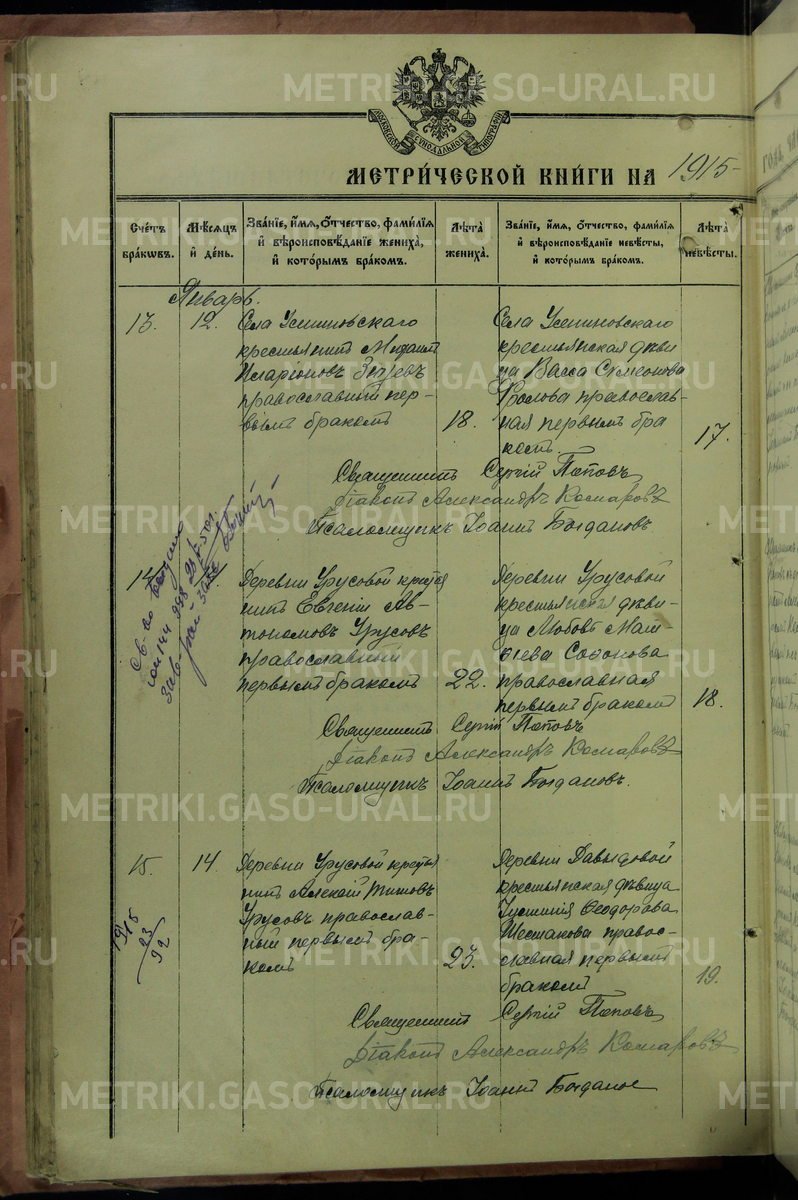 МОСКОВСКОЙ СУНОДАЛЬНОЙ ТИПОГРАФІИ
МЕТРИ́ЧЕСКОЙ КНИ́ГИ НА 1915
Сче́тъ бра́кѡвъ.
Мѣ́сяцъ и҆ де́нь.
Зва́нїе, и҆́мя, ѻ҆́тчество, фами́лїя и҆ вѣроисповѣ́данїе жениха̀, и҆ кото́рымъ бра́комъ.
Лѣ́та жениха̀.
Зва́нїе, и҆́мя, ѻ҆́тчество, фами́лїя и҆ вѣроисповѣ́данїе невѣ́сты, и҆ кото́рымъ бра́комъ.
Лѣ́та невѣ́сты.
Январь.
13.
12.
Села Усениновскаго
крестьянинъ Михаилъ
Иларіоновъ Зуевъ
православный пер-
вымъ бракомъ
18.
Села Усениновскаго
крестьянская дѣви
ца Васса Сѵмеонова
Фролова православ-
ная первымъ бра
комъ.
17.
Священникъ Сергій Поповъ
Діаконъ Александръ Комаровъ
Псаломщикъ Іоаннъ Богдановъ
14
Деревни Урусовой крестья
нинъ Евгеній Ав-
тономовъ Урусовъ
православный
первымъ бракомъ
22.
Деревни Урусовой
крестьянская дѣви-
ца Любовь Мат-
ѳіева Созонова
православная
первымъ бракомъ
18.
Священникъ Сергій Поповъ
Діаконъ Александръ Комаровъ
Псаломщикъ Іоаннъ Богдановъ.
15.
14
Деревни Урусовой крестья
нинъ Алексій Титовъ
Урусовъ православ-
ный первымъ бра-
комъ
23.
Деревни Давыдовой
крестьянская дѣвица
Іустинія Ѳеодорова
Шестакова правос-
лавная первымъ
бракомъ
19.
1915
23
92
Священникъ Сергій Поповъ
Діаконъ Александръ Комаровъ
Псаломщикъ Іоаннъ Богданов
METRIKI.GASO-URAL.RU